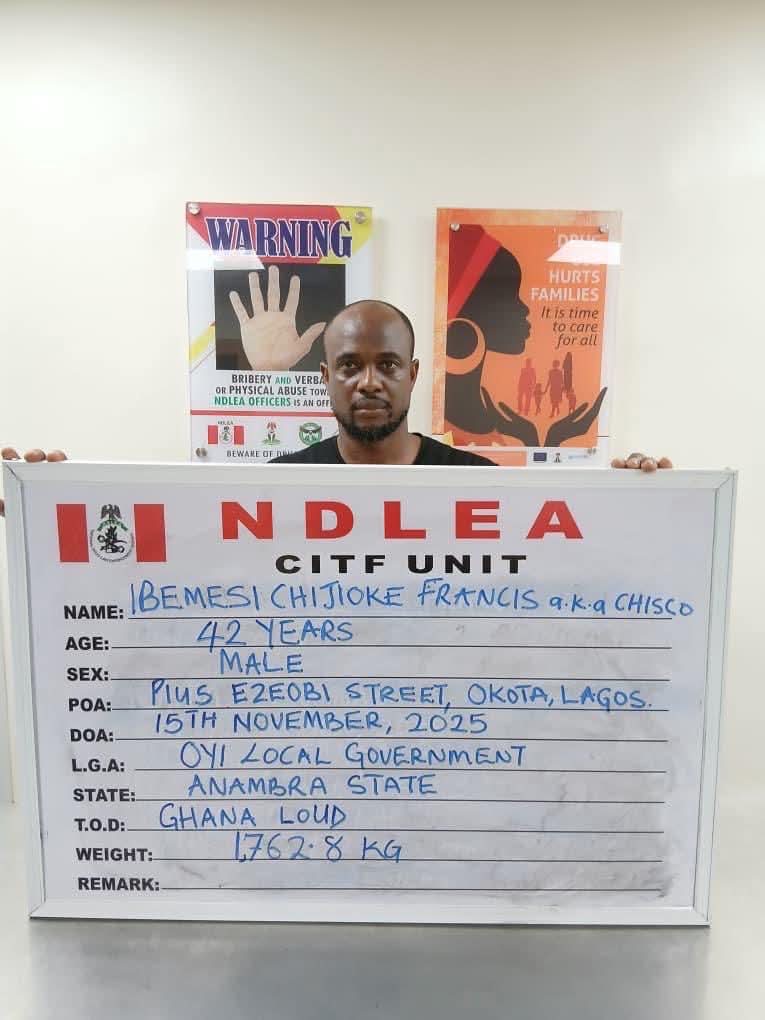 WARNING
BRIBERY AND VERBA
OR PHYSICAL ABUSE TOWA
NDLEA OFFICERS IS AN OFF
NDLEA
BEWARE OF DRU
DRUG
HURTS
FAMILIES
It is time
to care
for all
NDLEA
CITF UNIT
NAME: IBEMESI CHIJIOKE FRANCIS a.k.a CHISCO
AGE: 42 YEARS
SEX: MALE
POA: PIUS EZEOBI STREET, OKOTA, LAGOS.
DOA: 15TH NOVEMBER, 2025
L.G.A: OYI LOCAL GOVERNMENT
STATE: ANAMBRA STATE
T.O.D: GHANA LOUD
WEIGHT: 1,762.8 KG
REMARK: